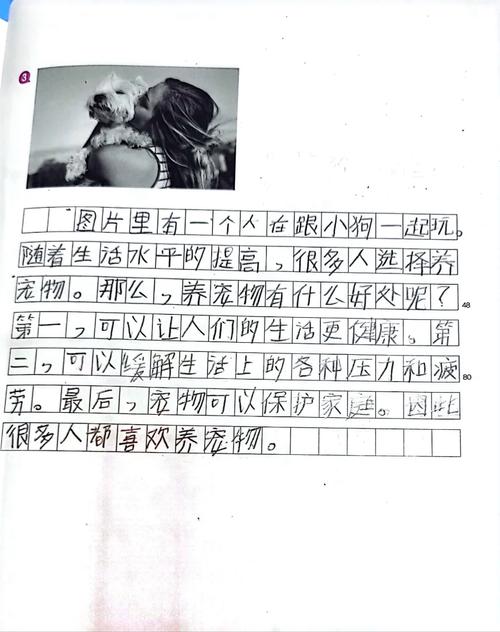 3
图片里有一个人在跟小狗一起玩。
随着生活水平的提高，很多人选择养
宠物。那么，养宠物有什么好处呢？
48
第一，可以让人们的生活更健康。第
二，可以缓解生活上的各种压力和疲
80
劳。最后，宠物可以保护家庭。因此
很多人都喜欢养宠物。